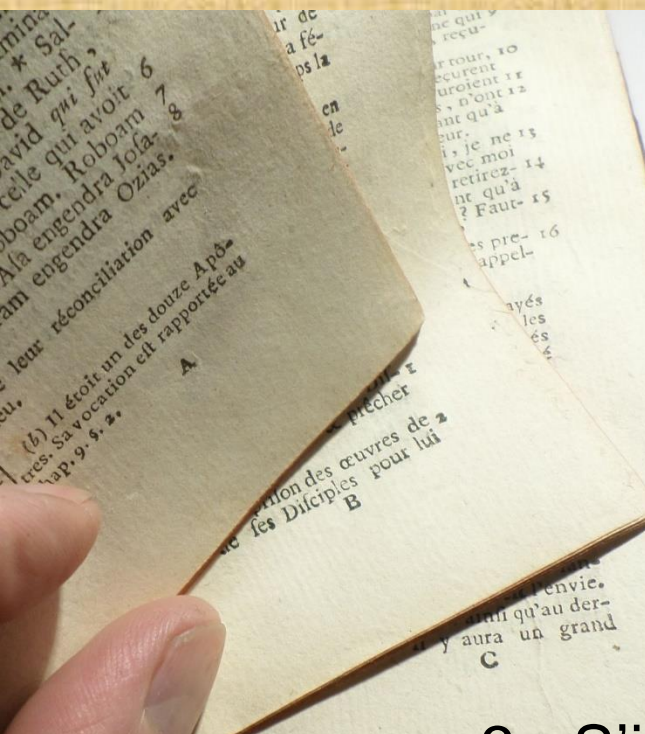 * Sal-
de Ruth,
avid qui fut
celle qui avoit 6
oboam. Roboam 7
Aſa engendra Joſa- 8
ram engendra Ozias.
leur réconciliation avec
eu.
(b) Il étoit un des douze Apô-
tres. Sa vocation eſt rapportée au
hap. 9. ỳ. 2.
A
ur de
a fé-
ps la
en
prêcher
priſon des œuvres de 2
ſes Diſciples pour lui
B
reçu-
tour, 10
eçurent
uroient 11
, n'ont 12
ant qu'à
eur.
, je ne 13
vec moi
retirez- 14
nt qu'à
? Faut- 15
es pre- 16
appel-
ayés
les
és
l'envie.
ainſi qu'au der-
y aura un grand
C